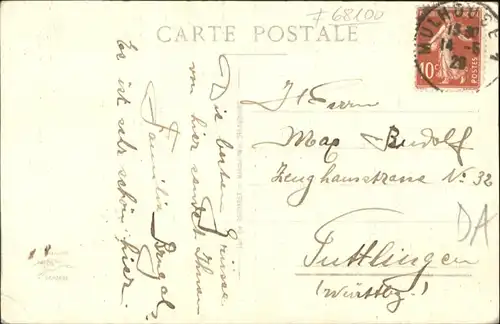 CARTE POSTALE
# 68100
MULHOUSE
14
28
10c
POSTES
Die besten Grüsse
von hier sendet Ihnen
Familie
Es ist sehr schön hier.
Herrn
Max Rudolf
Zeughausstrasse No 32
Tuttlingen
(Württbg.)
DA